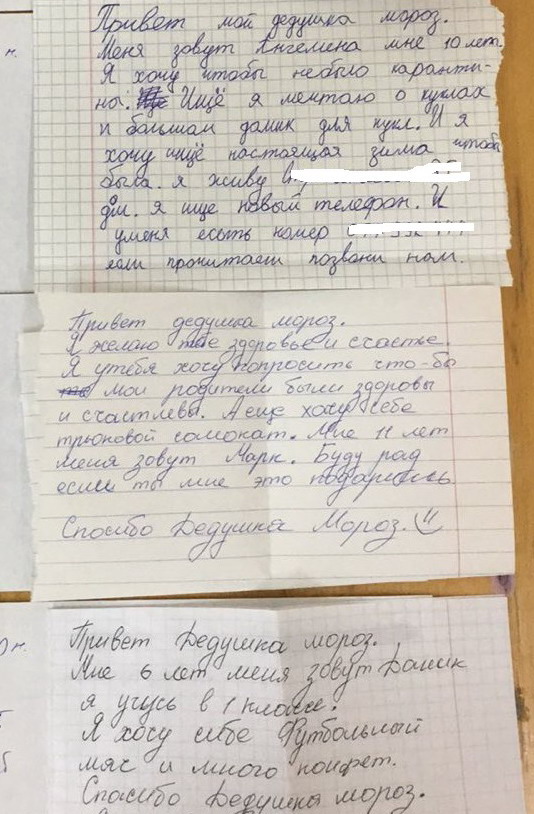 Привет мой дедушка мороз.
Меня зовут Ангелена мне 10 лет.
Я хочу чтобы небыло каранти-
на. Ищё я мечтаю о куклах
и большом домик для кукл. И я
хочу ищё настоящая зима чтобы
была. я живу
дм. я ище новый телефон. И
уменя есоть номер
если прочитаеш позвони нам.
Привет дедушка мороз.
Я желаю тебе здоровье и счастье.
Я утебя хочу попросить что-бы
мои родители были здоровы
и счастлевы. А еще хочу себе
трюковой самокат. Мне 11 лет
меня зовут Марк. Буду рад
если ты мне это подаришь
Спосибо Дедушка Мороз.
Привет Дедушка мороз.
Мне 6 лет меня зовут Даник
я учусь в 1 классе.
Я хочу себе Футбольный
мяч и много конфет.
Спасибо Дедушка мороз.